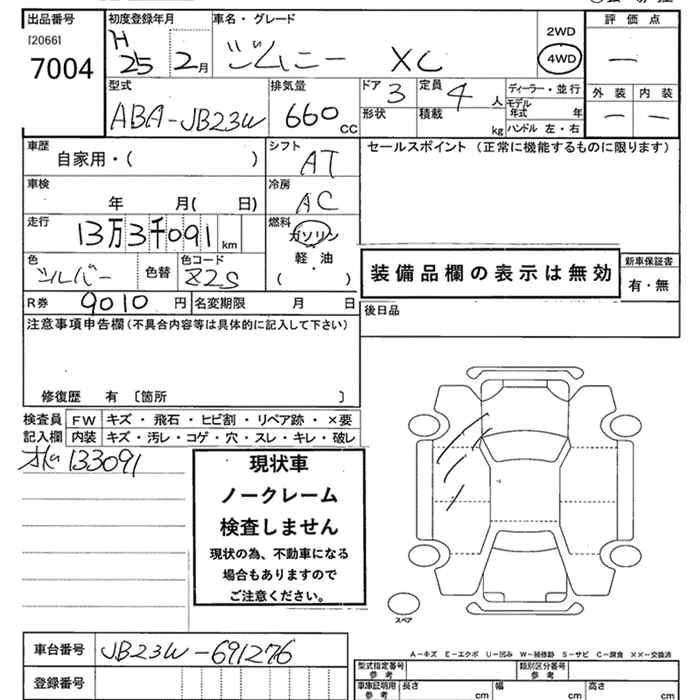 出品番号 初度登録年月 車名・グレード 評価点
[2066] H 25 2月 ジムニー XC 2WD 4WD —
7004
型式 排気量 ドア 定員 ディーラー・並行 外装 内装
ABA-JB23W 660 cc 3 4人 モデル年式 年 — —
形状 積載 kg ハンドル 左・右
車歴 シフト セールスポイント (正常に機能するものに限ります)
自家用・( ) AT
車検 冷房
年 月( 日) AC
走行 燃料
13万3千091 km ガソリン
色 色替 色コード 軽・油
シルバー Z2S ( )
装備品欄の表示は無効
新車保証書
有・無
R券 9010 円 名変期限 月 日
後日品
注意事項申告欄(不具合内容等は具体的に記入して下さい)
修復歴 有 〔箇所 〕
検査員 FW キズ・飛石・ヒビ割・リペア跡・×要
記入欄 内装 キズ・汚レ・コゲ・穴・スレ・キレ・破レ
133091
現状車
ノークレーム
検査しません
現状の為、不動車になる
場合もありますので
ご注意ください。
スペア
車台番号 JB23W-691276
登録番号
A-キズ E-エクボ U-凹み W-補修跡 S-サビ C-腐食 XX-交換済
型式指定番号 参考 類別区分番号 参考
車庫証明用 参考 長さ cm 幅 cm 高さ cm